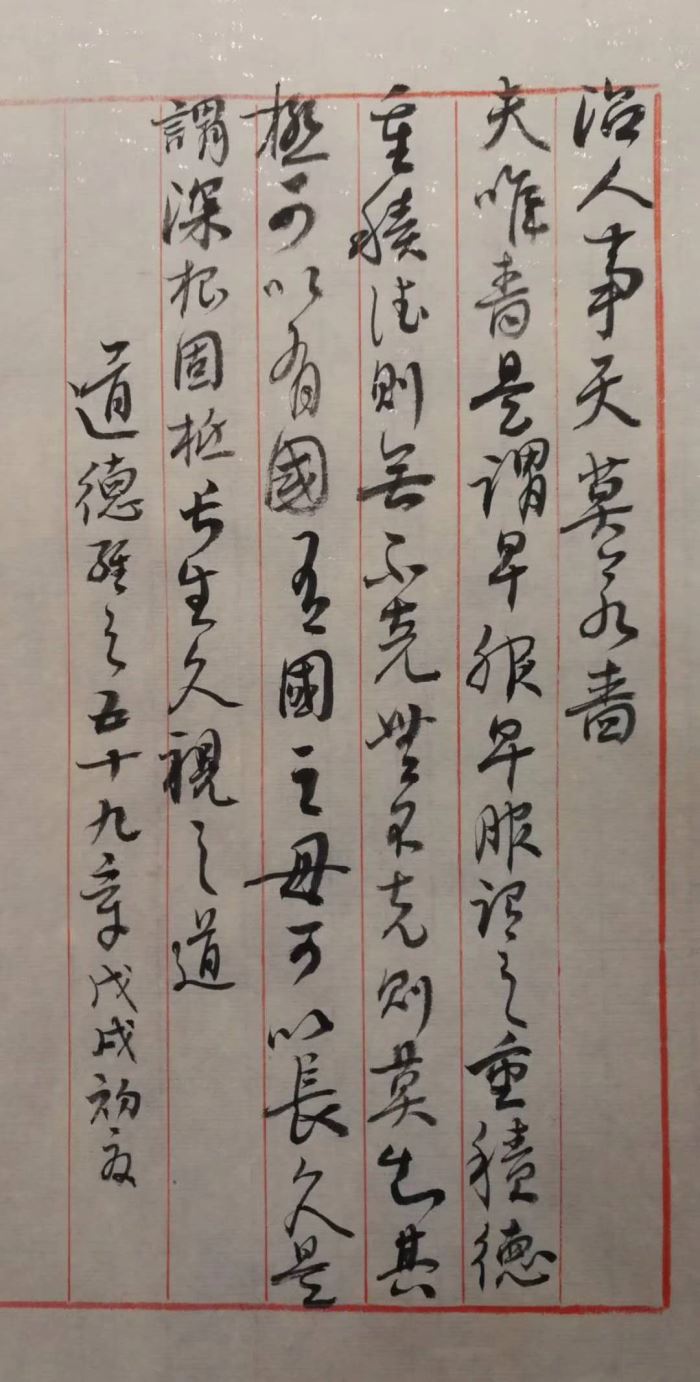 治人事天莫若嗇
夫唯嗇是謂早服早服謂之重積德
重積德則無不克無不克則莫知其
極可以有國有國之母可以長久是
謂深根固柢長生久視之道
道德經之五十九章戊戌初夏